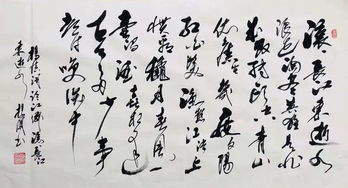 滚滚长江东逝水
浪花淘尽英雄是非
成败转头空青山
依旧在几度夕阳
红白发渔樵江渚上
惯看秋月春风一
壶浊酒喜相逢
古今多少事
都付笑谈中
杨慎词临江仙滚滚长江
东逝水